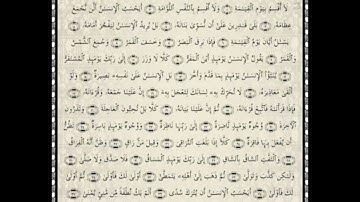 لَا أُقْسِمُ بِيَوْمِ الْقِيَامَةِ وَلَا أُقْسِمُ بِالنَّفْسِ اللَّوَّامَةِ أَيَحْسَبُ الْإِنسَانُ أَلَّن نَّجْمَعَ
عِظَامَهُ بَلَىٰ قَادِرِينَ عَلَىٰ أَن نُّسَوِّيَ بَنَانَهُ بَلْ يُرِيدُ الْإِنسَانُ لِيَفْجُرَ أَمَامَهُ
يَسْأَلُ أَيَّانَ يَوْمُ الْقِيَامَةِ فَإِذَا بَرِقَ الْبَصَرُ وَخَسَفَ الْقَمَرُ وَجُمِعَ الشَّمْسُ
وَالْقَمَرُ يَقُولُ الْإِنسَانُ يَوْمَئِذٍ أَيْنَ الْمَفَرُّ كَلَّا لَا وَزَرَ إِلَىٰ رَبِّكَ يَوْمَئِذٍ الْمُسْتَقَرُّ
يُنَبَّأُ الْإِنسَانُ يَوْمَئِذٍ بِمَا قَدَّمَ وَأَخَّرَ بَلِ الْإِنسَانُ عَلَىٰ نَفْسِهِ بَصِيرَةٌ وَلَوْ
أَلْقَىٰ مَعَاذِيرَهُ لَا تُحَرِّكْ بِهِ لِسَانَكَ لِتَعْجَلَ بِهِ إِنَّ عَلَيْنَا جَمْعَهُ وَقُرْآنَهُ
فَإِذَا قَرَأْنَاهُ فَاتَّبِعْ قُرْآنَهُ ثُمَّ إِنَّ عَلَيْنَا بَيَانَهُ كَلَّا بَلْ تُحِبُّونَ الْعَاجِلَةَ وَتَذَرُونَ
الْآخِرَةَ وُجُوهٌ يَوْمَئِذٍ نَّاضِرَةٌ إِلَىٰ رَبِّهَا نَاظِرَةٌ وَوُجُوهٌ يَوْمَئِذٍ بَاسِرَةٌ تَظُنُّ
أَن يُفْعَلَ بِهَا فَاقِرَةٌ كَلَّا إِذَا بَلَغَتِ التَّرَاقِيَ وَقِيلَ مَنْ رَاقٍ وَظَنَّ أَنَّهُ الْفِرَاقُ
وَالْتَفَّتِ السَّاقُ بِالسَّاقِ إِلَىٰ رَبِّكَ يَوْمَئِذٍ الْمَسَاقُ فَلَا صَدَّقَ وَلَا صَلَّىٰ
وَلَٰكِن كَذَّبَ وَتَوَلَّىٰ ثُمَّ ذَهَبَ إِلَىٰ أَهْلِهِ يَتَمَطَّىٰ أَوْلَىٰ لَكَ فَأَوْلَىٰ ثُمَّ أَوْلَىٰ
لَكَ فَأَوْلَىٰ أَيَحْسَبُ الْإِنسَانُ أَن يُتْرَكَ سُدًى أَلَمْ يَكُ نُطْفَةً مِّن مَّنِيٍّ يُمْنَىٰ